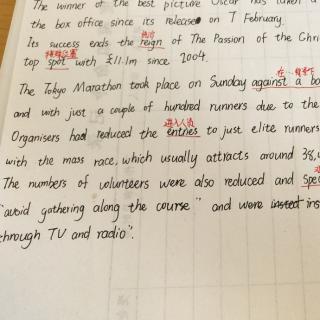 The winner of the best picture Oscar has taken a
the box office since its release on 7 February.
统治
Its success ends the reign of The Passion of the Chri
top spot with £11.1m since 2004.
The Tokyo Marathon took place on Sunday against a ba
and with just a couple of hundred runners due to the
进入人员
Organisers had reduced the entries to just elite runners
with the mass race, which usually attracts around 38,
The numbers of volunteers were also reduced and spec
"avoid gathering along the course" and were insted ins
through TV and radio".